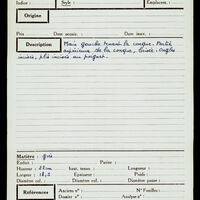 Indice : Style : Emplacem. :
Origine
Prix Date acquis. : Date inv. :
Description Main gauche tenant la conque. Partie
supérieure de la conque, brisée. Ongles
incisés, pli incisé au poignet.
Matière : grès
Enduit : Patine :
Hauteur : 22cm haut. tenon : Longueur :
Largeur : 18,5 Epaisseur : Poids :
Diamètre col. : Diamètre panse :
Références Anciens n° : N° Fouilles :
Dossier n° : Analyse n° :